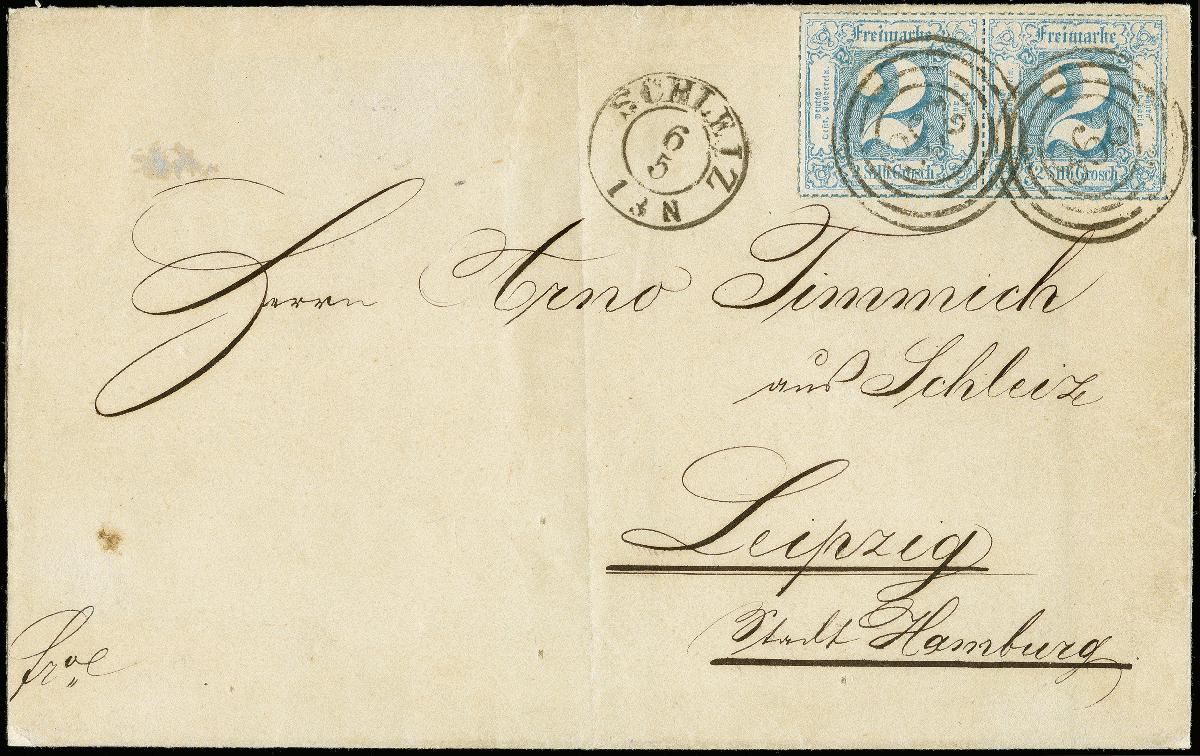 Freimarke Freimarke
2 2
2 Silb Grosch. 2 Silb Grosch.
SCHLEIZ
6
5
Herrn Arno Timmich
aus Schleiz
Leipzig
Stadt Hamburg